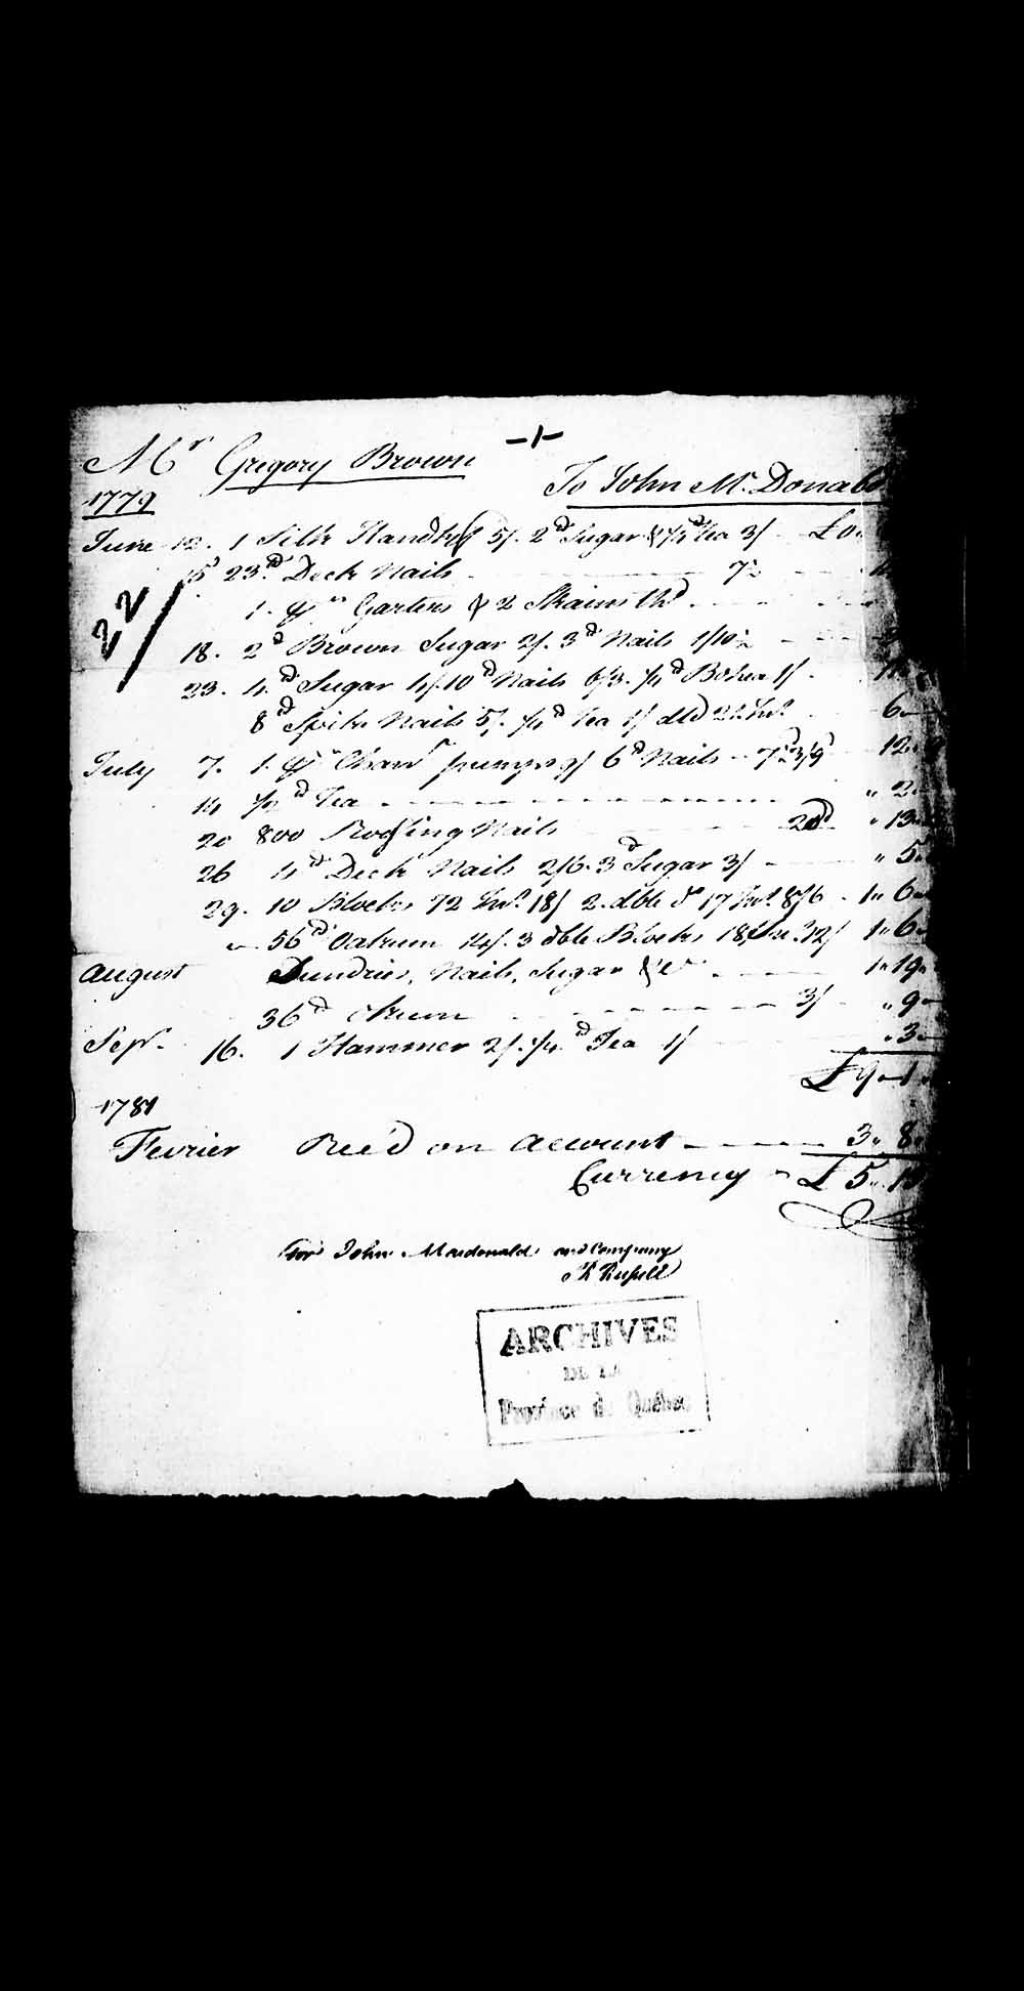 -1-
Mr Gregory Brown
To John Mc Donald
1779
June 12. 1 Silk Handkf 5/. 2d Sugar & 1/2d Tea 3/ £0
15 23d Deck Nails 7½
1. pr Garters & 2 Skains thd
22/
18. 2d Brown Sugar 2/. 3d Nails 1/10½
23. 4d Sugar 4/. 10d Nails 6/3. 1/4d Bohea 1/.
8d Spike Nails 5/. 1/4d Tea 1/ 6
July 7. 1. pr pumps 9/ 6d Nails 7½ 3/9 12
14 1/2d Tea 2
20 800 Roofing Nails 20d 13
26 4d Deck Nails 2/6. 3d Sugar 3/ 5
29. 10 Blocks 72 Ins. 18/ 2. dble do 17 Ins. 8/6 1 6
56d Oakum 14/. 3 dble Blocks 18 12/ 1 6
August Sundries, Nails, Sugar &c 1 19
36d 3/ 9
Sepr. 16. 1 Hammer 2/. 1/4d Tea 1/ 3
£ 9 1
1781
Fevrier Rec'd on account 3 8
Currency £ 5
For John Macdonald and Company
Russell
ARCHIVES
DE LA
Province de Québec